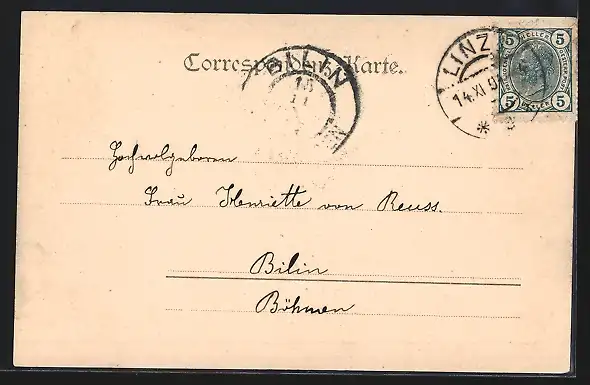 Correspondenz-Karte.
BILIN
LINZ
14.XI
5 HELLER 5
5 HELLER 5
Hochwolgeboren
Frau Henriette von Reuss.
Bilin
Böhmen